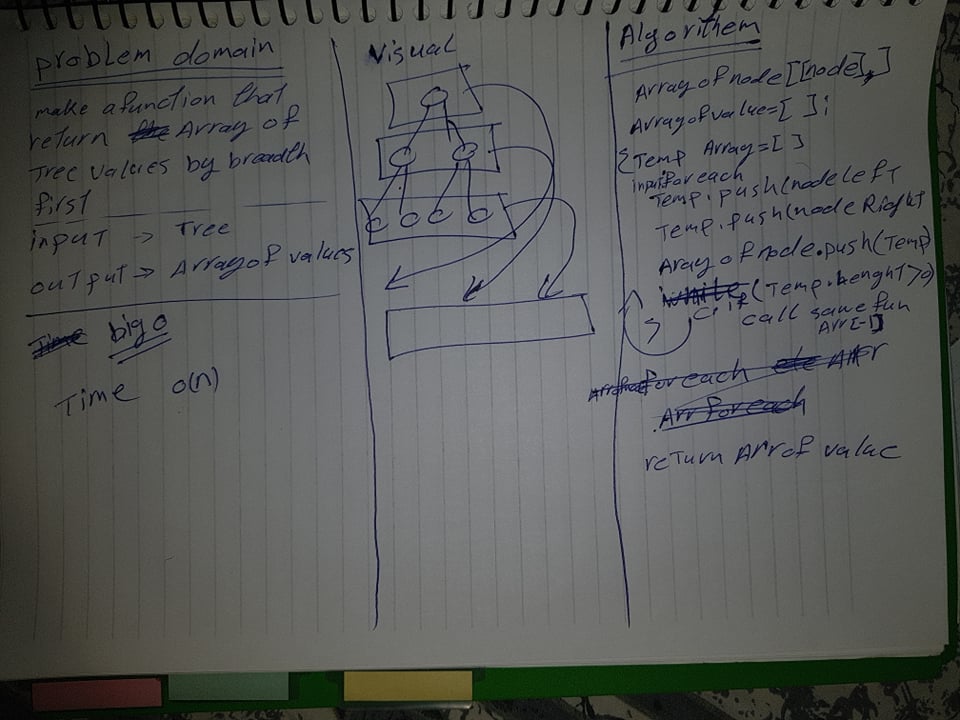 problem domain
make a function that
return Array of
Tree values by breadth
first
input → Tree
output → Array of values
Time big o
Time o(n)
Visual
Algorithem
Array of node [[node],]
Array of value = [ ] ;
{ Temp Array = [ ]
input foreach
Temp.push(node Left
Temp.push(node Right
Array of node.push(Temp)
while if (Temp.lenght > 0)
call same fun
Arr[-1]
foreach ele Arr
Arr foreach
return Arr of value